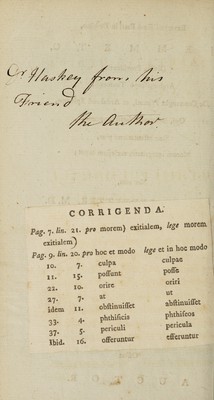 Dr Haskey from his
Friend
the Author.
CORRIGENDA.
Pag. 7. lin. 21. pro morem) exitialem, lege morem
exitialem)
Pag. 9. lin. 20. pro hoc et modo lege et in hoc modo
10. 7. culpa culpae
11. 15. possunt posse
22. 10. orire oriri
27. 7. at ut
idem 11. obstinuisset abstinuisset
33. 4. phthisicis phthiseos
37. 5. periculi pericula
Ibid. 16. offeruntur efferuntur